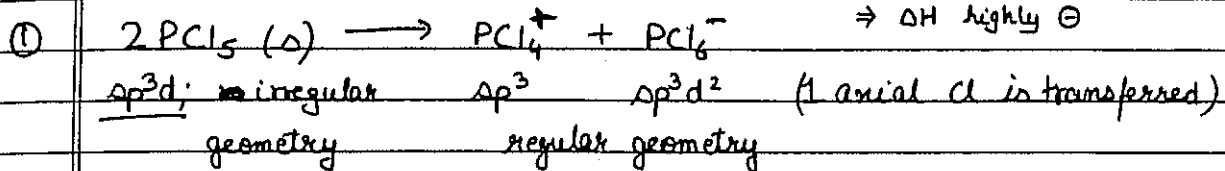 ① 2 PCl₅ (s) ⟶ PCl₄⁺ + PCl₆⁻ ⇒ ΔH highly ⊖
sp³d; irregular sp³ sp³d² (1 axial Cl is transferred)
geometry regular geometry